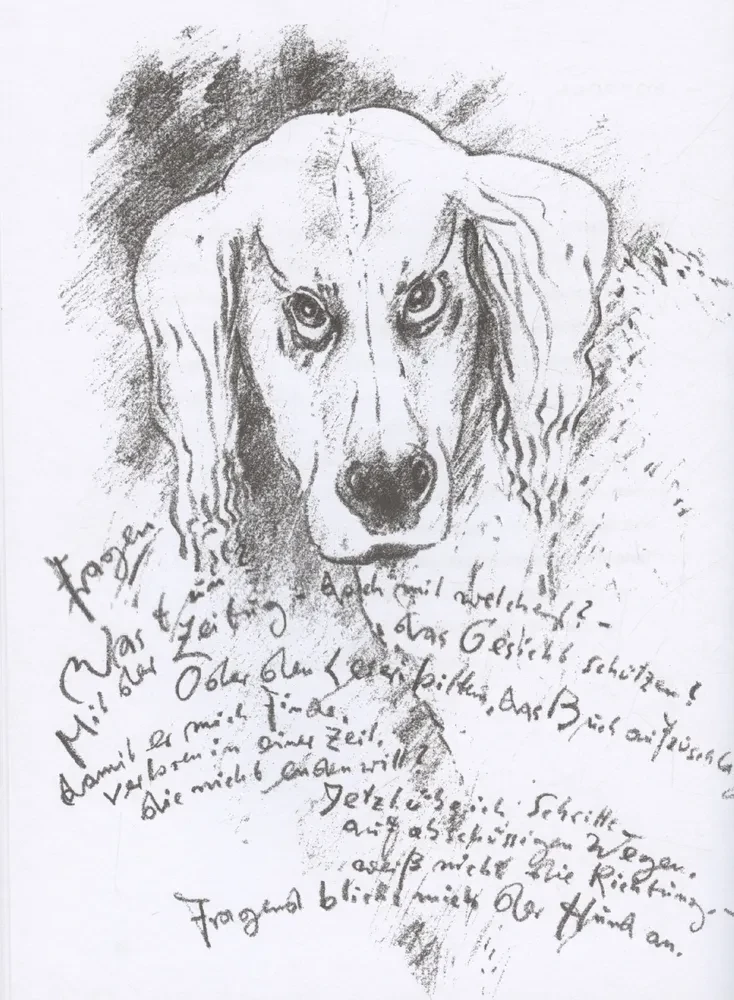 Fragen
Was tun?
Mit der Zeitung – doch mit welcher? –
das Gesicht schützen?
Oder den Leser bitten, das Buch aufzuschla
damit er mich finde,
verloren in einer Zeit,
die nicht enden will?
Jetzt übe ich Schritte
auf abschüssigen Wegen,
weiß nicht die Richtung. –
Fragend blickt mich der Hund an.